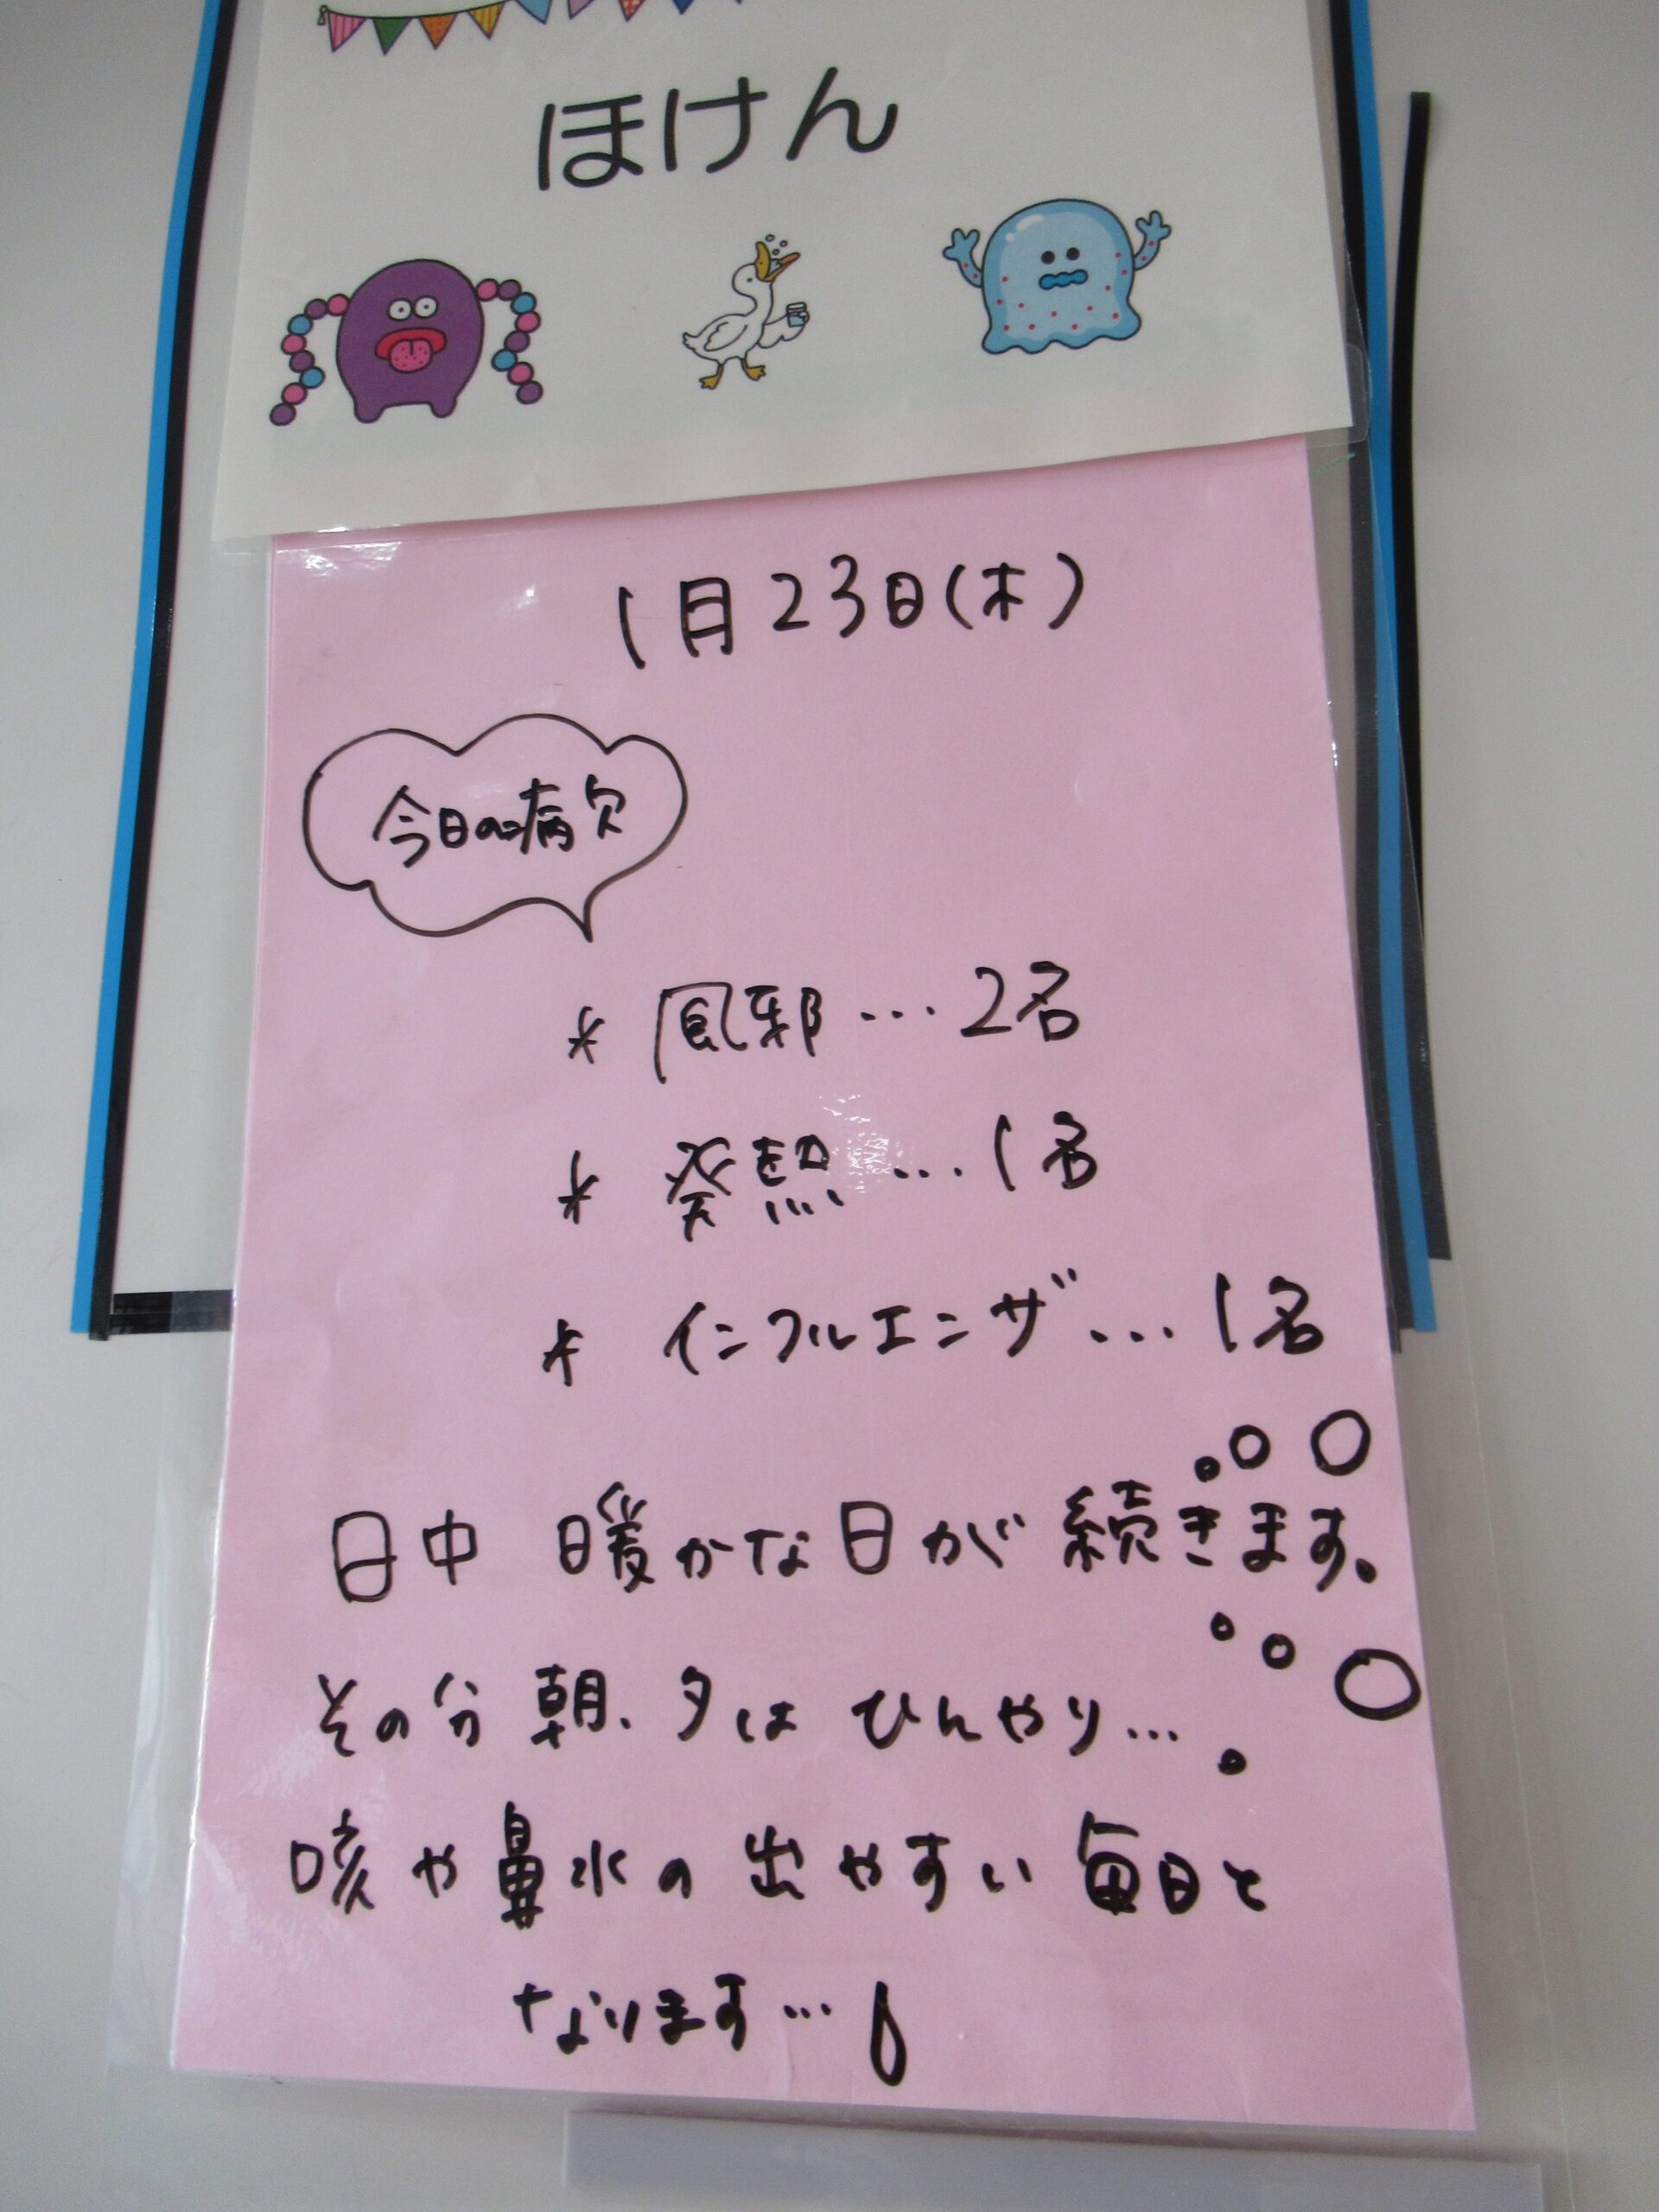 ほけん
1月23日(木)
今日の病欠
* 風邪…2名
* 発熱…1名
* インフルエンザ…1名
日中 暖かな日が続きます。
その分 朝、夕は ひんやり…
咳や鼻水の出やすい毎日と
なります…